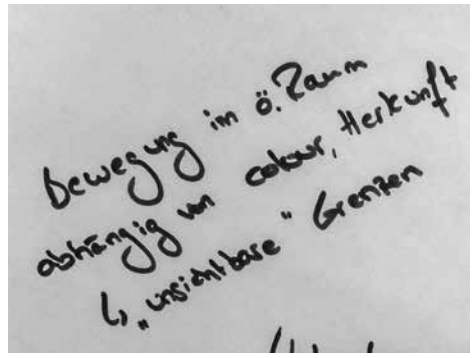 Bewegung im ö. Raum
abhängig von colour, Herkunft
↳ „unsichtbare" Grenzen